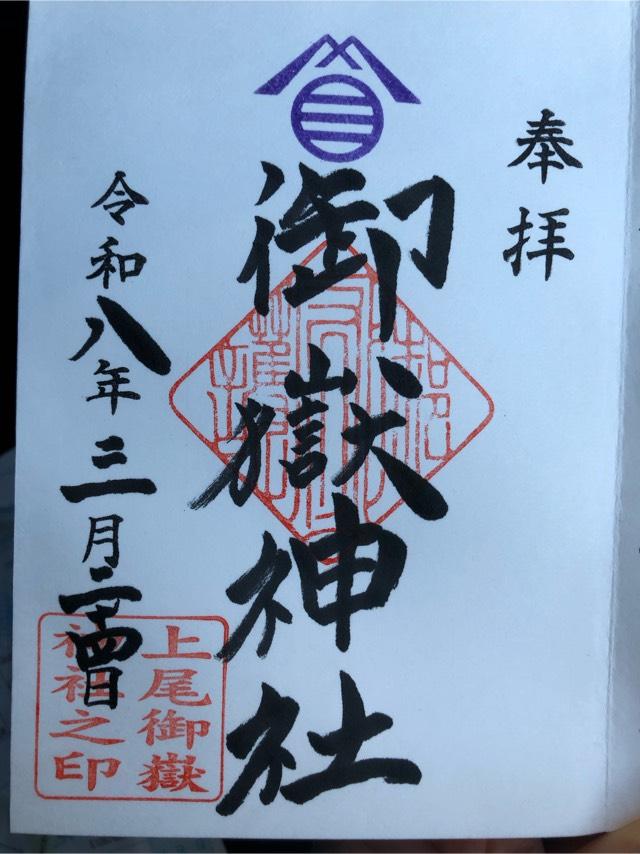 奉拝
御嶽神社
令和八年三月二十四日
上尾御嶽
神社之印